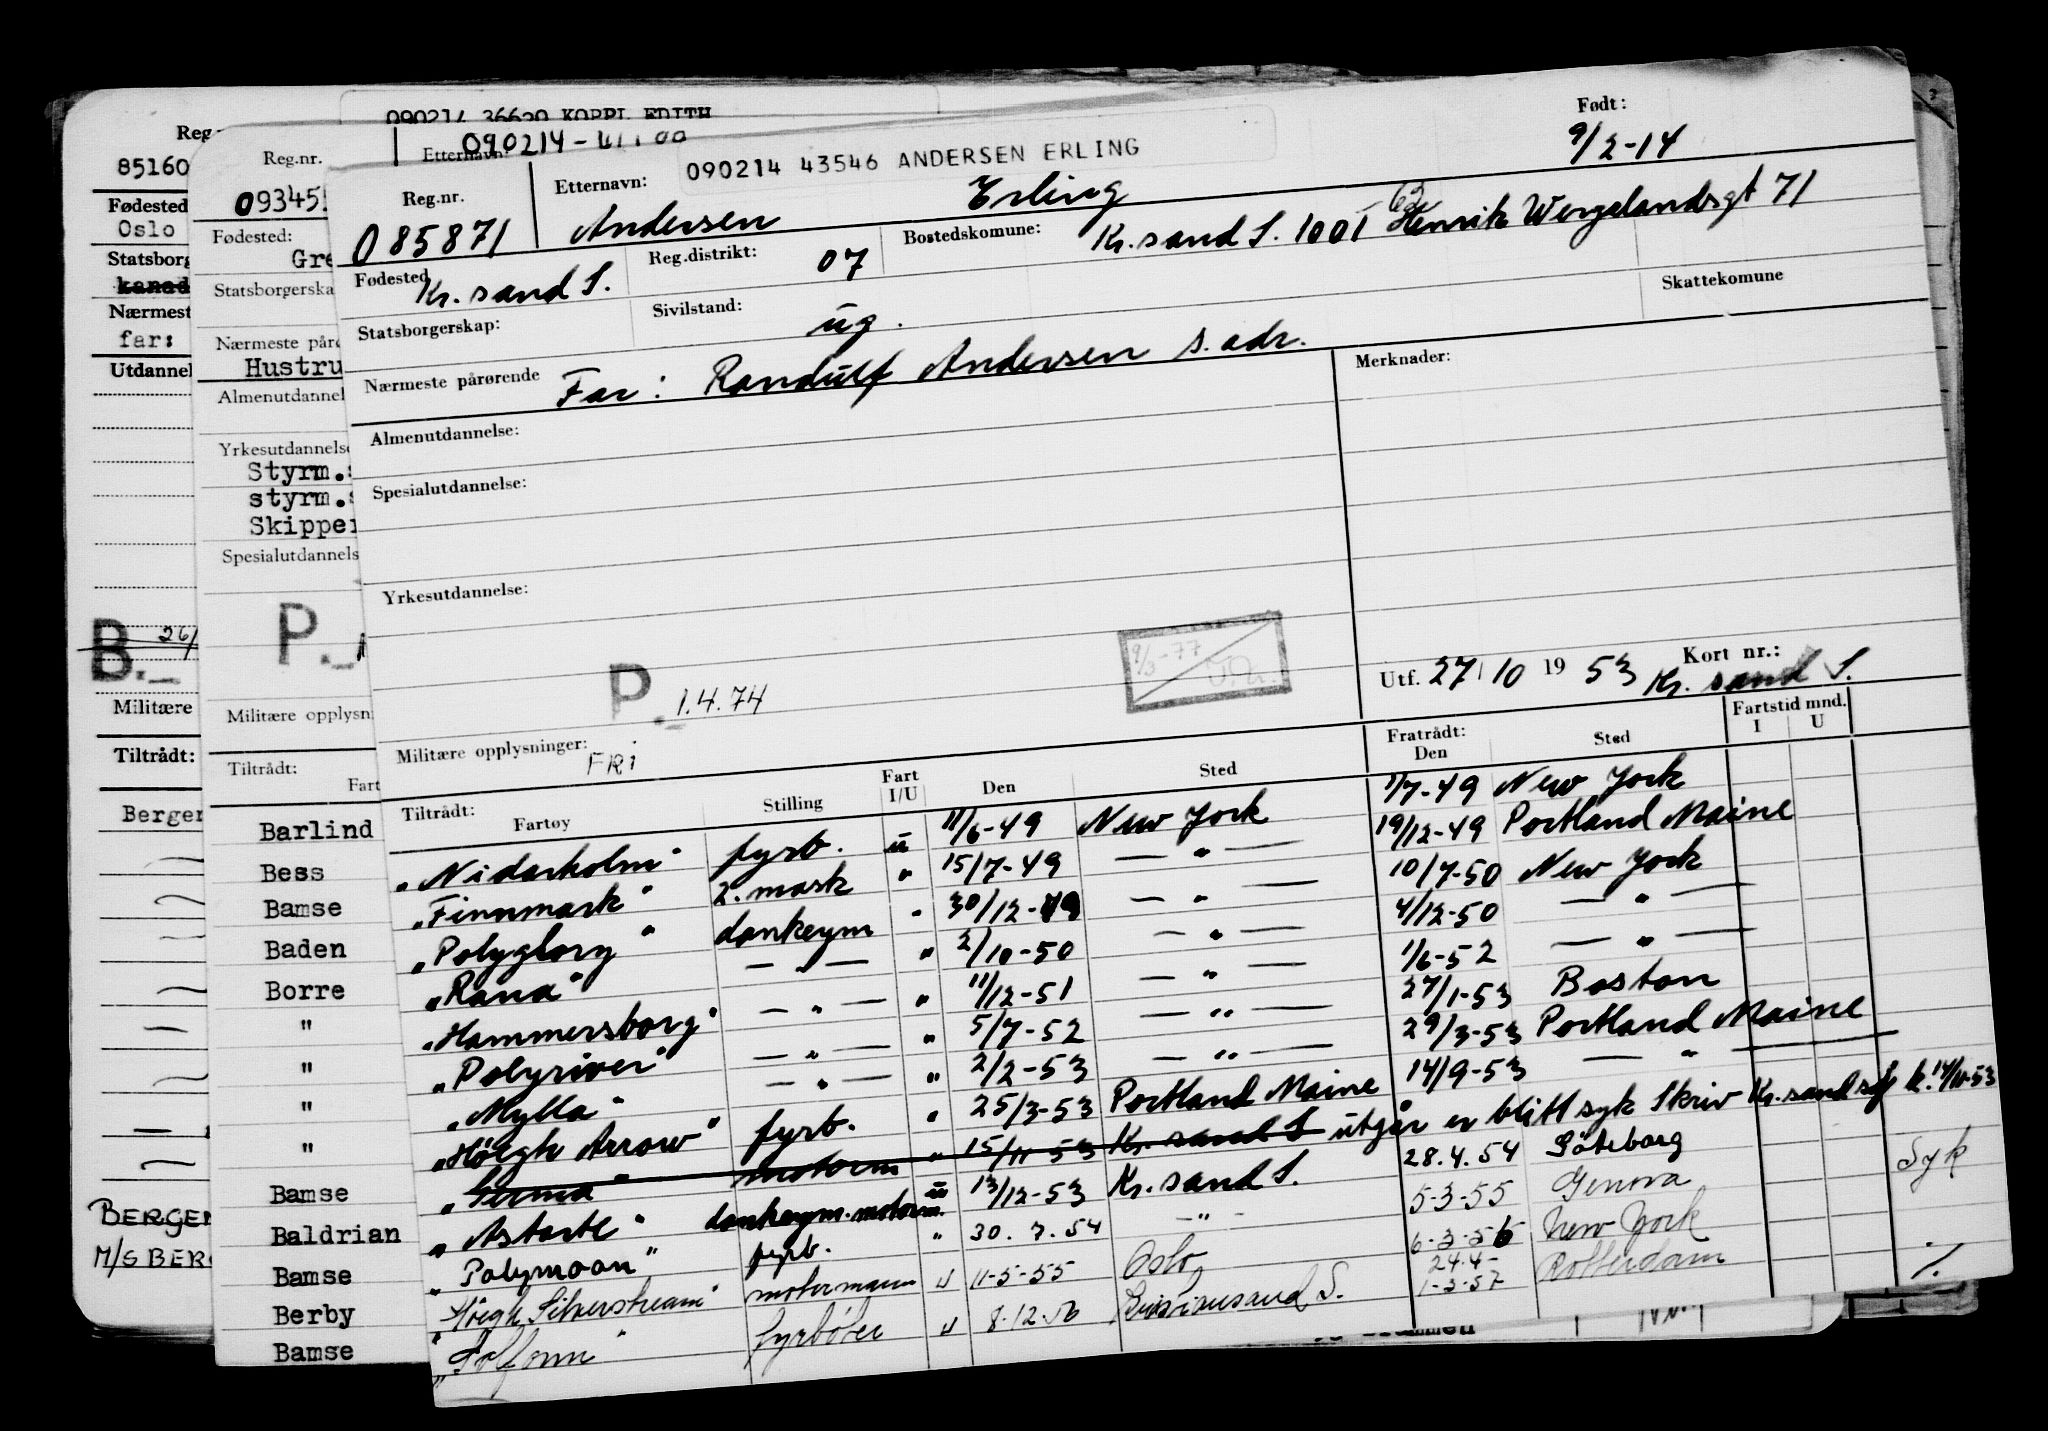 090214 36620 KOPPL EDITH
090214 -
Reg.
85160
Fødested
Oslo
Statsborg
Nærmest
far:
Utdannel
B.
26/
Militære
Tiltrådt:
Berger
BERGEN
M/S BERG
Reg.nr.
Etternavn:
09345
Fødested:
Gre
Statsborgerska
Nærmeste påre
Hustru
Almenutdannel
Yrkesutdannelse
Styrm.s
styrm.s
Skipper
Spesialutdannels
P.
Militære opplysn
Tiltrådt:
Fart
Barlind
Bess
Bamse
Baden
Borre
"
"
"
"
Bamse
Baldrian
Bamse
Berby
Bamse
090214 43546 ANDERSEN ERLING
Født:
9/2-14
Reg.nr.
085871
Etternavn:
Andersen
Erling
Fødested
Kr.sand S.
Reg.distrikt:
07
Bostedskomune:
Kr.sand S. 1001 Henrik Wergelandsgt 71
Statsborgerskap:
Sivilstand:
ug.
Skattekomune
Nærmeste pårørende
Far: Randulf Andersen s. adr.
Merknader:
Almenutdannelse:
Spesialutdannelse:
Yrkesutdannelse:
P. 1.4.74
9/3-77
Utf. 27/10 1953
Kort nr.:
Kr. sand S.
Militære opplysninger:
FRi
Tiltrådt:
Fartøy
Stilling
Fart I/U
Den
Sted
Fratrådt: Den
Sted
Fartstid mnd.
I U
"Nidarholm" fyrb. u 11/6-49 New York 1/7-49 New York
"Finnmark" 2. mask " 15/7-49 — " — 19/12-49 Portland Maine
"Polyglory" donkeym " 30/12-49 — " — 10/7-50 New York
"Rana" — " — " 2/10-50 — " — 4/12-50 — " —
"Hammersborg" — " — " 11/12-51 — " — 1/6-52 — " —
"Polyriver" — " — " 5/7-52 — " — 27/1-53 Boston
"Mylla" — " — " 2/2-53 — " — 29/3-53 Portland Maine
"Høegh Arrow" fyrb. " 25/3-53 Portland Maine 14/9-53 — " —
"Germa" motorm " 15/11-53 Kr. sand S utgår er blitt syk Skriv Kr.sand sjf k. 14/11-53
"Astarte" donkeym. motorm. u 13/12-53 Kr. sand S. 28.4.54 Göteborg
"Polymoon" fyrb. " 30.7.54 — " — 5-3-55 Genova Syk
"Høegh Silverstream" motormann " 11-5-55 Oslo 6-3-56 New York
24.4-
"Solfonn" fyrbøter " 8.12.56 Kristiansand S. 1-3-57 Rotterdam